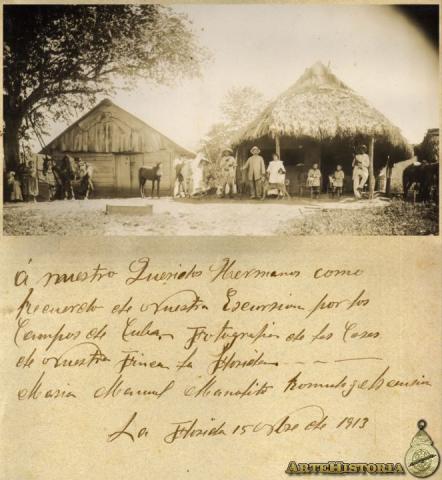 á nuestro Queridos Hermanos como
recuerdo de Nuestra Escursion por los
Campos de Cuba, Fotografia de las Casas
de Nuestra Finca La Florida
Maria Manuel Manolito Romulo y
La Florida 15 de 1913
ARTEHISTORIA